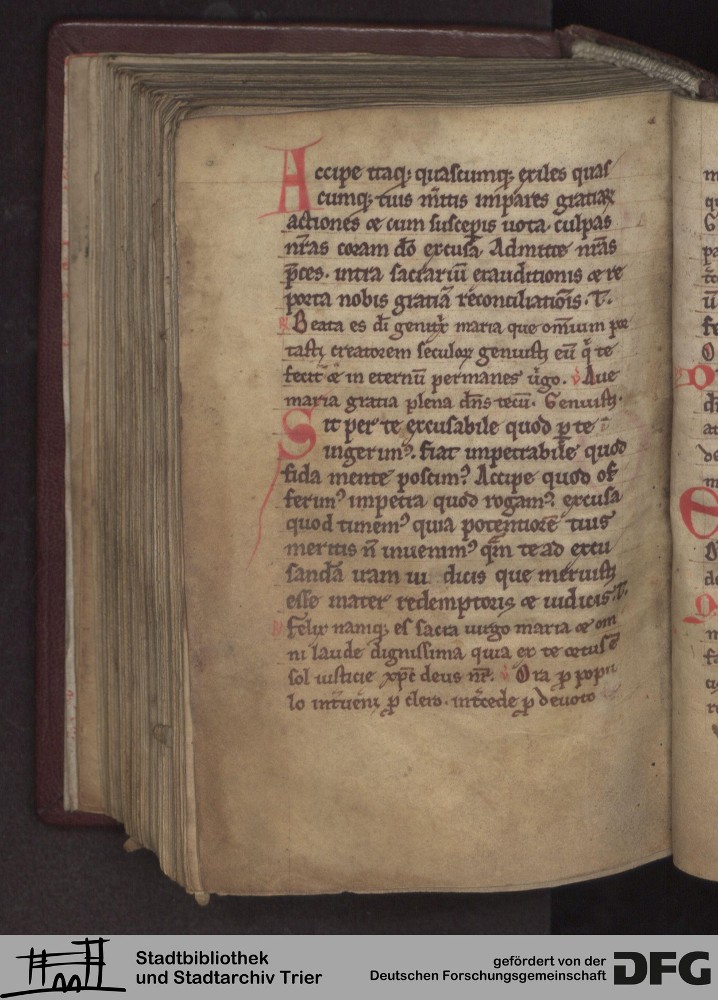 Accipe itaq; quascumq; exiles quas
cumq; tuis m̅itis impares gratiaꝝ
actiones & cum susceperis uota culpas
nr̅as coram dō excusa. Admitte nr̅as
p̅ces. intra sacrariū exauditionis & re
porta nobis gratiā reconciliatiōis. T̅.
℟ Beata es dī genitrix maria que omnium por
tasti creatorem seculoꝝ genuisti eū q̄ te
fecit & in eternū permanes u̅go. ℣ Aue
maria gratia plena dn̅s tecū. Genuisti.
Sit per te excusabile quod p te
ingerimꝰ. fiat impetrabile quod
fida mente poscimꝰ Accipe quod of
ferimꝰ impetra quod rogamꝰ excusa
quod timemꝰ quia potentiorē tuis
meritis n̅ inuenimꝰ qm̅ te ad excu
sandā iram iudicis que meruisti
esse mater redemptoris & iudicis. T̅.
℟ Felix namq; es sacra uirgo maria & om
ni laude dignissima quia ex te ortus ē
sol iusticie xp̅c deus nr̅. ℣ Ora p popu
lo int̅ueni p clero. int̅cede p deuoto
Stadtbibliothek
und Stadtarchiv Trier
gefördert von der
Deutschen Forschungsgemeinschaft
DFG